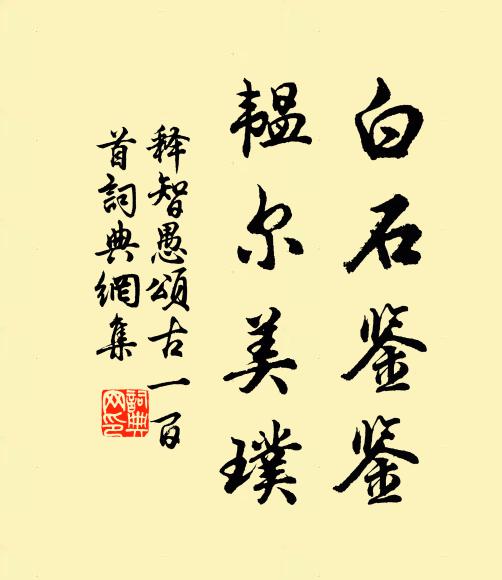 白石鉴鉴
韫尔美璞
释智愚颂古一百
首詞典網集
詞典网印